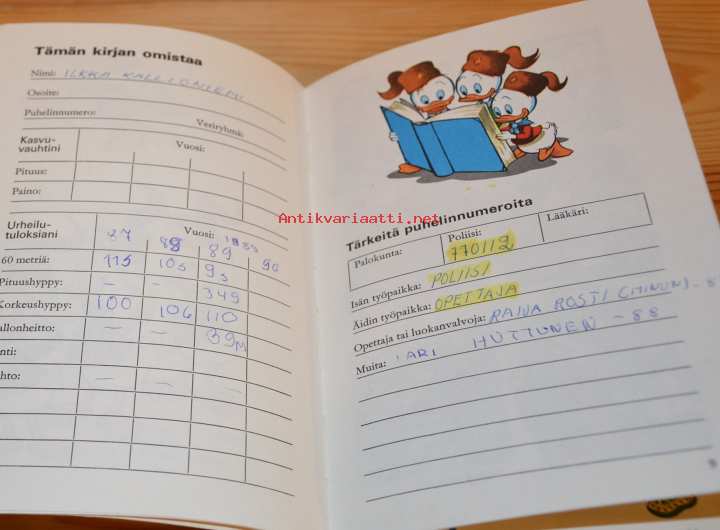 Tämän kirjan omistaa
Nimi: ILKKA
Osoite:
Puhelinnumero: Veriryhmä:
Kasvu-
vauhtini
Vuosi:
Pituus:
Paino:
Urheilu-
tuloksiani
Vuosi:
87 88 89 90
60 metriä: 115 105 9s
Pituushyppy: — — 349
Korkeushyppy: 100 106 110
allonheitto: — — 39m
nti:
hto: — — —
Antikvariaatti.net
Tärkeitä puhelinnumeroita
Palokunta: Poliisi: 770112 Lääkäri:
Isän työpaikka: POLIISI
Äidin työpaikka: OPETTAJA
Opettaja tai luokanvalvoja: RAIJA ROSTI (MINUN)
Muita: JARI HUTTUNEN - 88